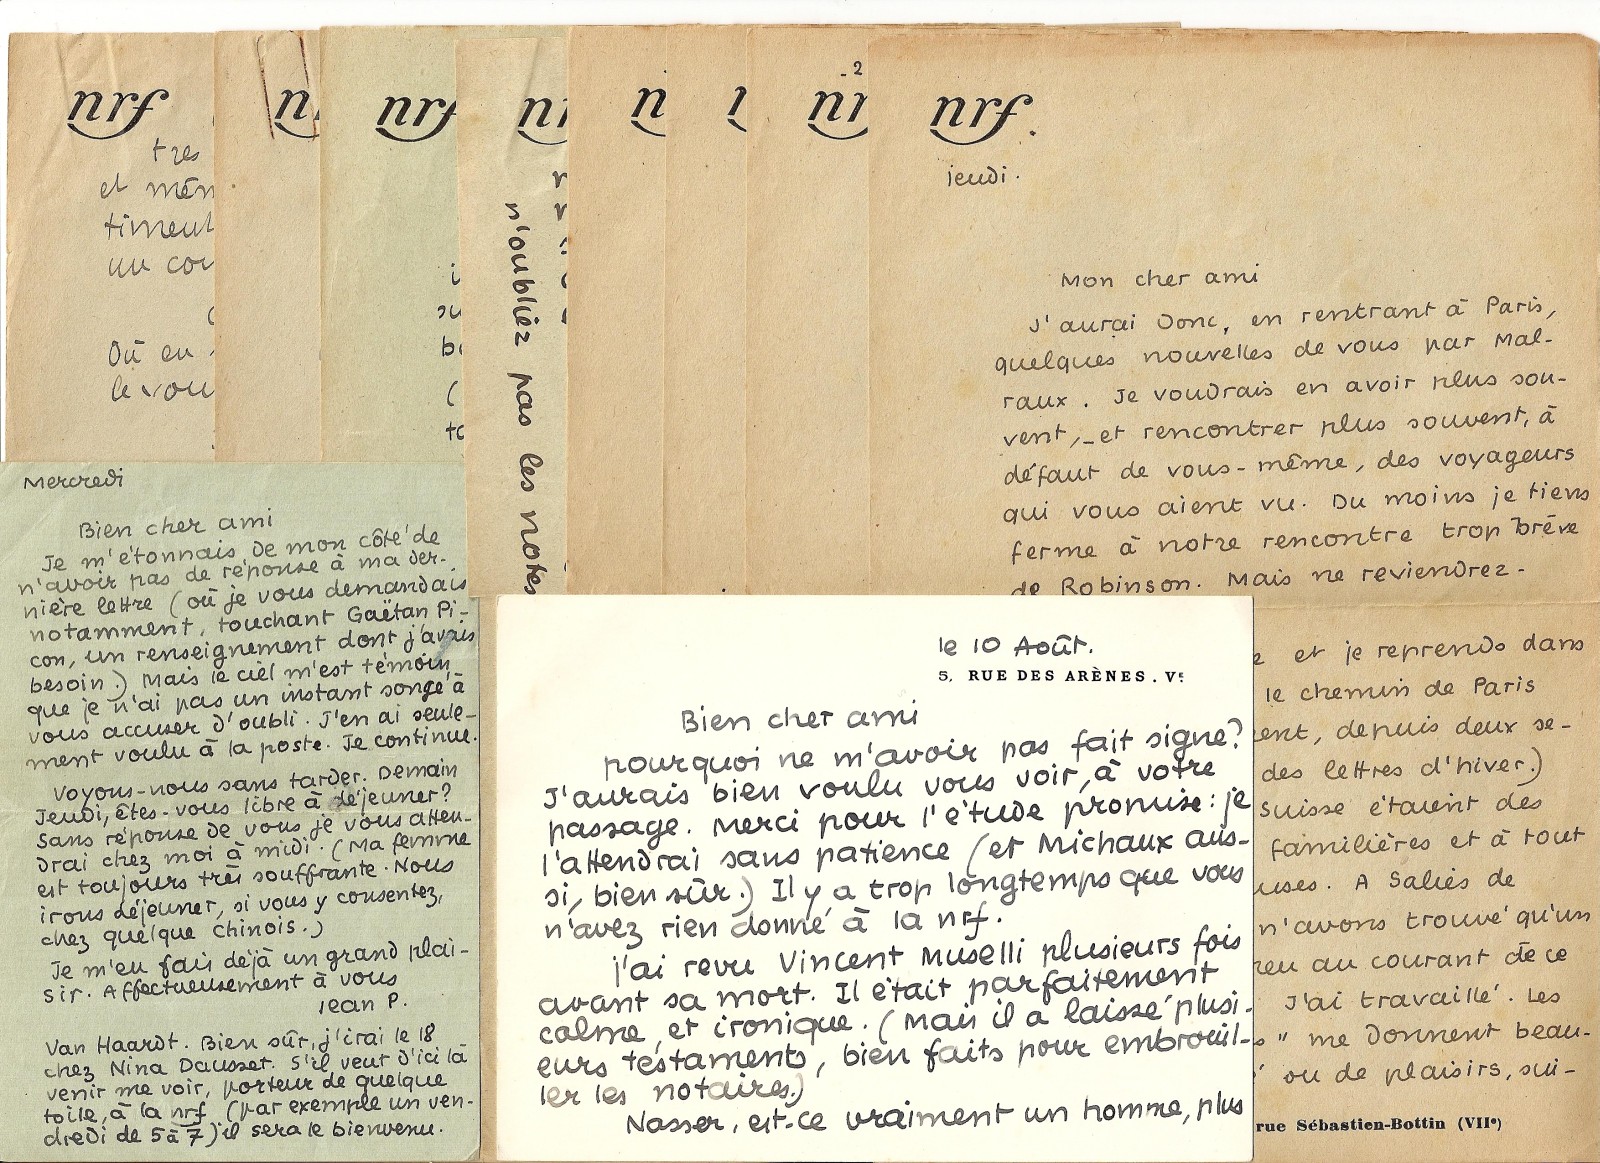 nrf
tres
et mêm
timent
un cou
Où en
le vou
n
nrf
i
su
bo
(
to
nr
n'oubliez pas les notes
n
nr
- 2
nrf.
jeudi.
Mon cher ami
J'aurai donc, en rentrant à Paris,
quelques nouvelles de vous par Mal-
raux. Je voudrais en avoir plus sou-
vent, - et rencontrer plus souvent, à
défaut de vous-même, des voyageurs
qui vous aient vu. Du moins je tiens
ferme à notre rencontre trop brève
de Robinson. Mais ne reviendrez-
e et je reprends dans
le chemin de Paris
ent, depuis deux se-
des lettres d'hiver.)
Suisse étaient des
familières et à tout
uses. A Saliès de
n'avons trouvé qu'un
eu au courant de ce
J'ai travaillé. Les
s" me donnent beau-
ou de plaisirs, sui-
rue Sébastien-Bottin (VIIe)
Mercredi
Bien cher ami
Je m'étonnais de mon côté de
n'avoir pas de réponse à ma der-
nière lettre (où je vous demandais
notamment, touchant Gaëtan Pi-
con, un renseignement dont j'avais
besoin.) Mais le ciel m'est témoin
que je n'ai pas un instant songé à
vous accuser d'oubli. J'en ai seule-
ment voulu à la poste. Je continue.
Voyons-nous sans tarder. Demain
Jeudi, êtes-vous libre à déjeuner?
Sans réponse de vous je vous atten-
drai chez moi à midi. (Ma femme
est toujours très souffrante. Nous
irons déjeuner, si vous y consentez,
chez quelque chinois.)
Je m'en fais déjà un grand plai-
sir. Affectueusement à vous
Jean P.
Van Haardt. Bien sûr, j'irai le 18
chez Nina Dausset. S'il veut d'ici là
venir me voir, porteur de quelque
toile, à la nrf (par exemple un ven-
dredi de 5 à 7) il sera le bienvenu.
le 10 Août.
5, RUE DES ARÈNES. Ve
Bien cher ami
pourquoi ne m'avoir pas fait signe?
J'aurais bien voulu vous voir, à votre
passage. Merci pour l'étude promise: je
l'attendrai sans patience (et Michaux aus-
si, bien sûr.) Il y a trop longtemps que vous
n'avez rien donné à la nrf.
J'ai revu Vincent Muselli plusieurs fois
avant sa mort. Il était parfaitement
calme, et ironique. (Mais il a laissé plusi-
eurs testaments, bien faits pour embrouil-
ler les notaires.)
Nasser, est-ce vraiment un homme, plus